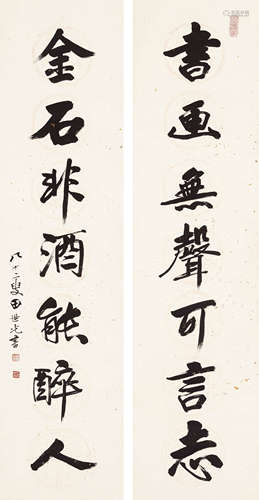 書画無聲可言志
金石非酒能醉人
八十二叟田世光書